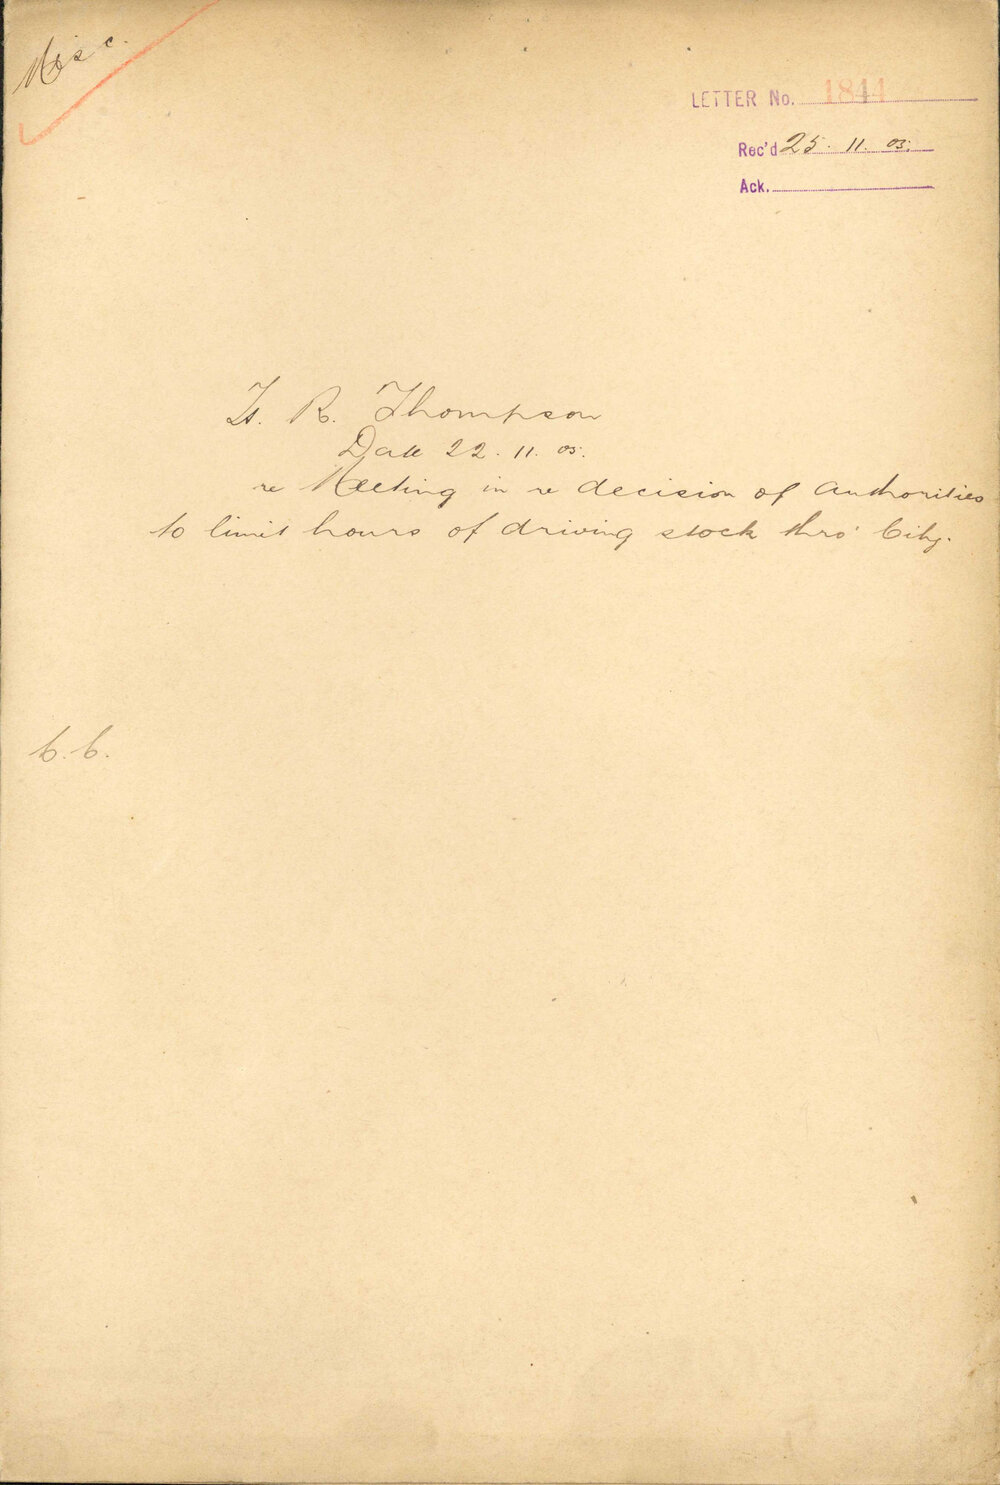 Misc.
LETTER No. 1844
Rec'd 25. 11. 03.
Ack.
R. Thompson
Date 22. 11. 03.
re Meeting in re decision of authorities
to limit hours of driving stock thro' City.
C. C.